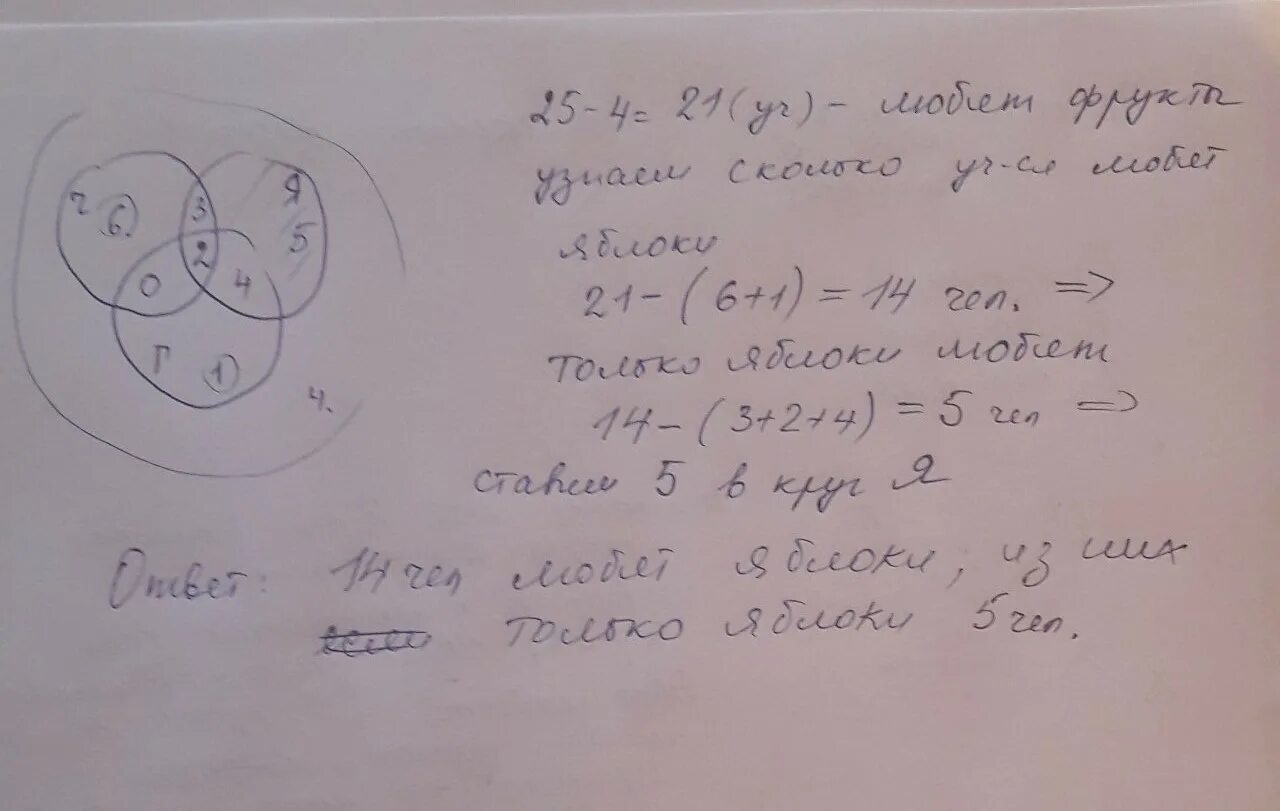 25-4=21(уч) - любят фрукты
узнаем сколько уч-ся любят
яблоки
21-(6+1)=14 чел. =>
только яблоки любят
14-(3+2+4)=5 чел =>
ставим 5 в круг Я
Ответ: 14 чел любят яблоки, из них
только яблоки 5 чел.
Ч 6 3 Я
5
2
0 4
Г 1
4.